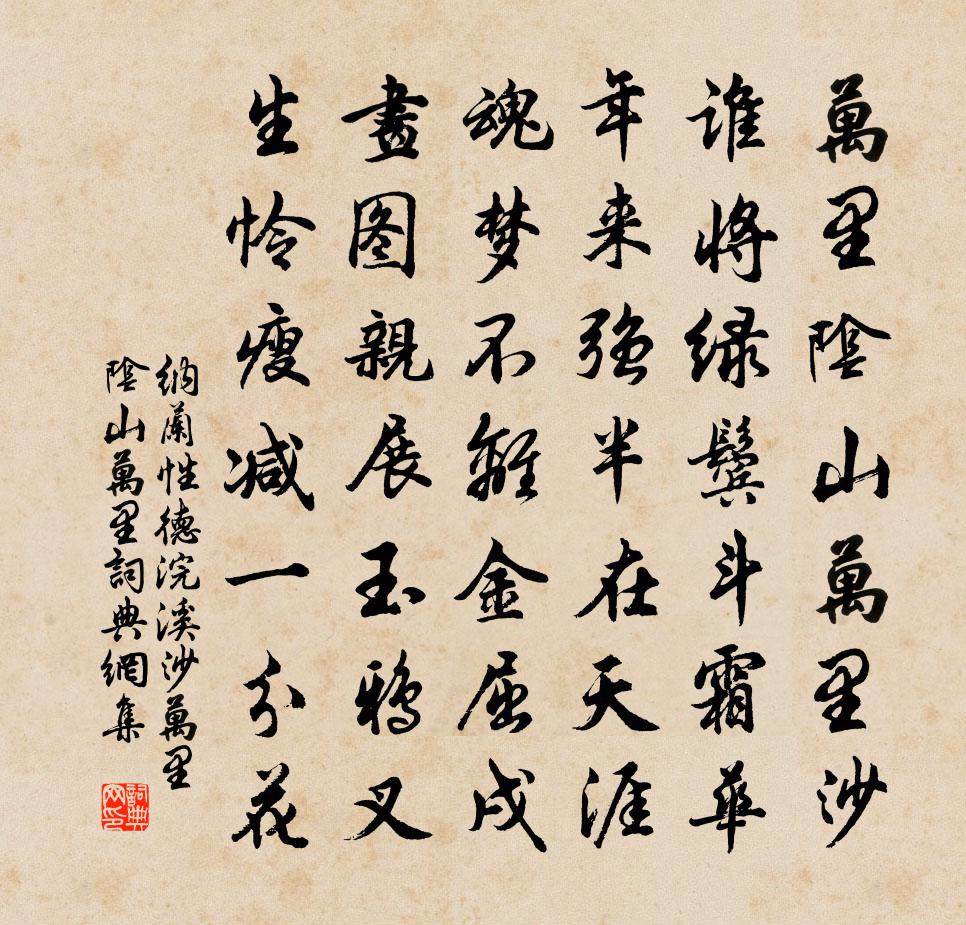 萬里陰山萬里沙
谁將緑鬓斗霜華
年来强半在天涯
魂梦不離金屈戍
畫图親展玉鸦叉
生怜瘦减一分花
納蘭性德浣溪沙萬里
陰山萬里詞典網集
詞典
网印